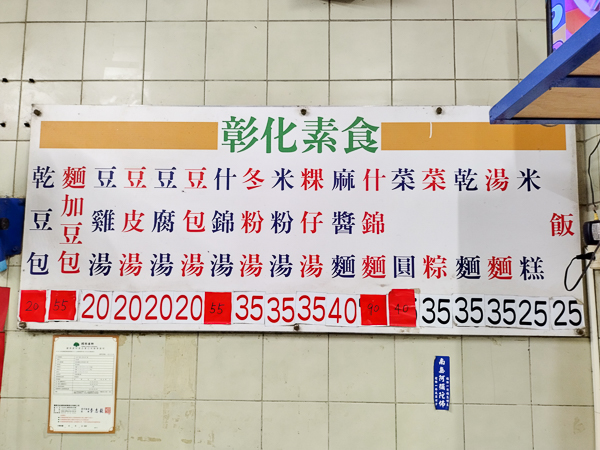 彰化素食
乾豆包
麵加豆包
豆雞湯
豆皮湯
豆腐湯
豆包湯
什錦湯
冬粉湯
米粉湯
粿仔湯
麻醬麵
什錦麵
菜圓
菜粽
乾麵
湯麵
米糕
飯
20 55 20 20 20 20 55 35 35 35 40 35 35 35 25 25
南無阿彌陀佛